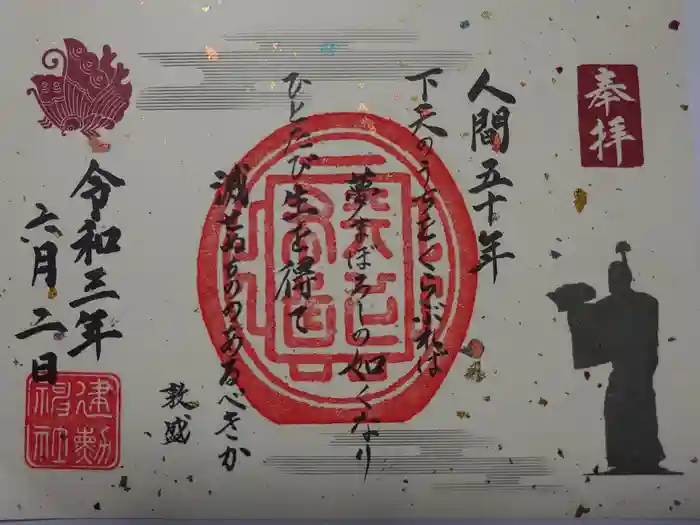 奉拝
人間五十年
下天のうちをくらぶれば
夢まぼろしの如くなり
ひとたび生を得て
滅せぬもののあるべきか
敦盛
令和三年
六月二日
建勳
神社